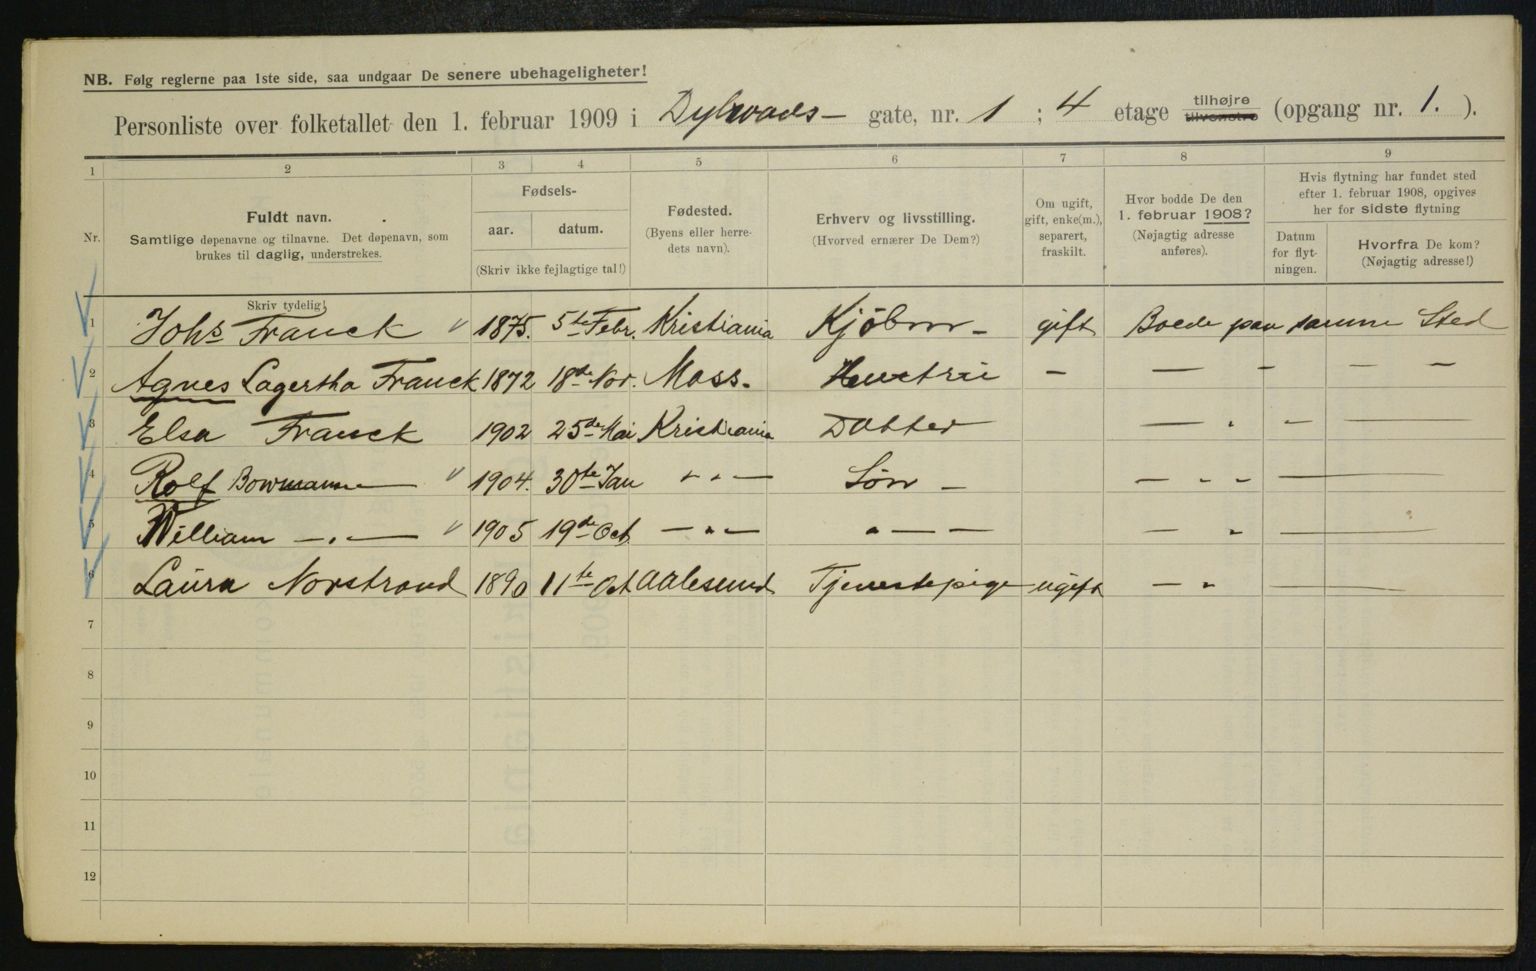 NB. Følg reglerne paa 1ste side, saa undgaar De senere ubehageligheter!
Personliste over folketallet den 1. februar 1909 i Dybwads- gate, nr. 1 ; 4 etage tilhøjre tilvenstre (opgang nr. 1. ).
1 2 3 4 5 6 7 8 9
Nr.
Fuldt navn.
Samtlige døpenavne og tilnavne. Det døpenavn, som
brukes til daglig, understrekes.
Fødsels-
aar. datum.
(Skriv ikke fejlagtige tal!)
Fødested.
(Byens eller herre-
dets navn).
Erhverv og livsstilling.
(Hvorved ernærer De Dem?)
Om ugift,
gift, enke(m.),
separert,
fraskilt.
Hvor bodde De den
1. februar 1908?
(Nøjagtig adresse
anføres).
Hvis flytning har fundet sted
efter 1. februar 1908, opgives
her for sidste flytning
Datum
for flyt-
ningen.
Hvorfra De kom?
(Nøjagtig adresse!)
Skriv tydelig!
1 Johs Franck 1875. 5te Febr. Kristiania Kjøbm - gift Boede paa samme Sted
2 Agnes Lagertha Franck 1872 18de Nov. Moss. Hustru - — - — -
3 Elsa Franck 1902 25de Mai Kristiania Datter — " - —
4 Rolf Bowmann — 1904. 30te Jan " " — Søn - — " " —
5 William — " — 1905 19de Oct — " — " — — — " —
6 Laura Norstrand 1890 11te Oct Aalesund Tjenestepige ugift — " —
7
8
9
10
11
12